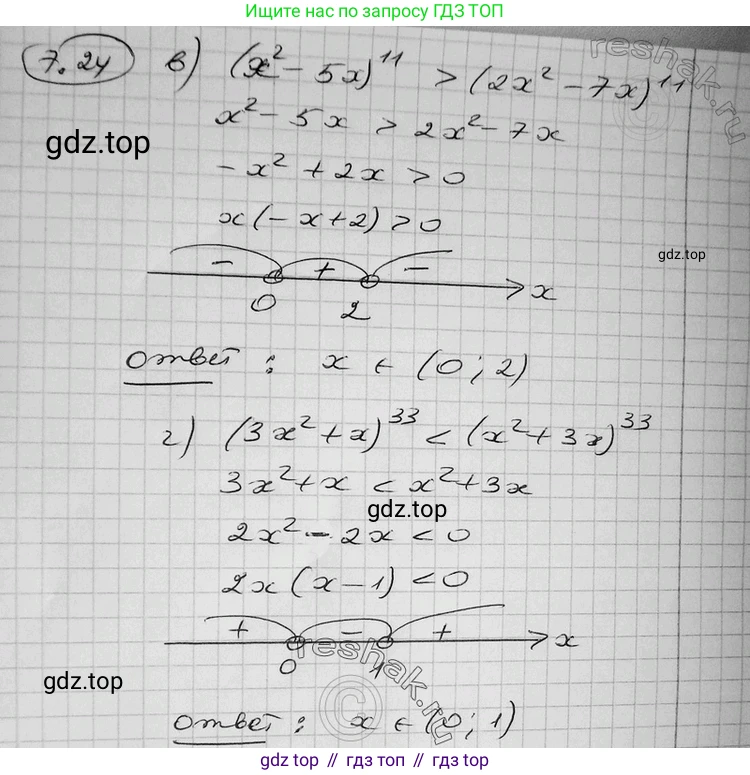 Ищите нас по запросу ГДЗ ТОП
7.24 в) (x² - 5x)¹¹ > (2x² - 7x)¹¹
reshak.ru
x² - 5x > 2x² - 7x
gdz.top
-x² + 2x > 0
x(-x+2) > 0
gdz.top
- + -
0 2 x
ответ : x ∈ (0; 2)
г) (3x² + x)³³ < (x² + 3x)³³
3x² + x < x² + 3x
gdz.top
2x² - 2x < 0
2x(x - 1) < 0
+ - +
0 1 x
reshak.ru
©
gdz.top
ответ : x ∈ (0; 1)
gdz.top // гдз топ // гдз.топ